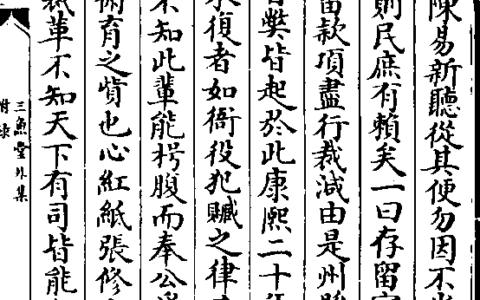 陳易新聽從其便勿因不
則民庶有賴矣一曰存留
留款項盡行裁減由是州縣
弊皆起於此康熙二十年
復者如衙役犯贓之律
不知此輩能枵腹而奉公
術育之貲也心紅紙張修
裁革不知天下有司皆能
三魚堂外集
附錄